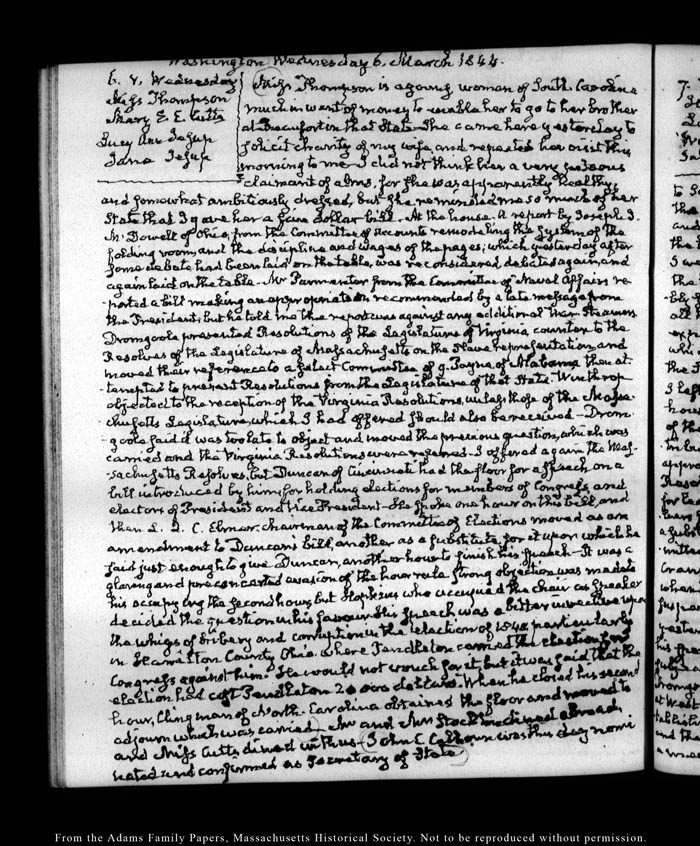 Washington Wednesday 6. March 1844.
6. V. Wednesday
Miss Thompson
Mary E E Cutts
Lucy Ann Jesup
Jane Jesup
Miss Thompson is a young woman of South Carolina
much in want of money to enable her to go to her brother
at Beaufort in that State. She came here yesterday to
solicit charity of my wife, and repeated her visit this
morning to me. I did not think her a very
claimant of alms, for she was apparently healthy
and somewhat ambitiously dressed, but she reminded me so much of her
State that I gave her a five dollar bill. At the house. A report by Joseph J.
McDowell of Ohio, from the Committee of Accounts remodeling the system of the
folding room, and the discipline and wages of the pages; which yesterday after
some debate had been laid on the table, was reconsidered debated again, and
again laid on the table. Mr Parmenter from the Committee of Naval Affairs re-
-ported a bill making an appropriation recommended by a late message from
the President, but he told me the report was against any additional Steamers
Dromgoole presented Resolutions of the Legislature of Virginia counter to the
Resolves of the Legislature of Massachusetts on the Slave representation, and
moved their reference to a select Committee of 9. Payne of Alabama then at-
-tempted to present Resolutions from the Legislature of that State. Winthrop
objected to the reception of the Virginia Resolutions, unless those of the Massa-
chusetts Legislature, which I had offered should also be received — Drom-
goole said it was too late to object and moved the previous question, which was
carried and the Virginia Resolutions were referred. I offered again the Mas-
-sachusetts Resolves, but Duncan of Cincinnati had the floor for a speech on a
bill introduced by him, for holding elections for members of Congress and
electors of President and Vice President. He spoke one hour on this bill, and
then L. Q. C. Elmer, chairman of the Committee of Elections moved as an
amendment to Duncan's bill, another as a substitute for it upon which he
said just enough to give Duncan, another hour to finish his speech. It was a
glaring and preconcerted evasion of the hour rule. Strong objection was made to
his occupying the second hour, but Hopkins who occupied the chair as Speaker
decided the question in his favour. His speech was a bitter invective upon
the whigs of bribery and corruption in the election of 1840 particularly
in Hamilton County Ohio, where Pendleton carried the election for
Congress against him. He would not vouch for it, but it was said that the
election had cost Pendleton 20 000 dollars. When he closed his second
hour, Clingman of North-Carolina obtained the floor and moved to
adjourn which was carried. Mr and Mrs dined abroad
and Miss Cutts dined with us — John C. Calhoun was this day nomi
nated and confirmed as Secretary of State
From the Adams Family Papers, Massachusetts Historical Society. Not to be reproduced without permission.